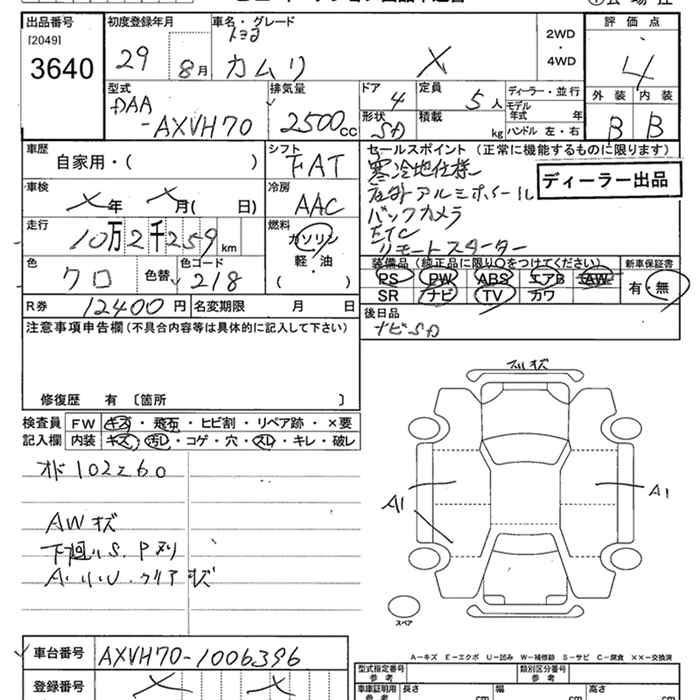 出品番号 初度登録年月 車名・グレード 評価点
[2049] トヨタ 2WD
3640 29 8月 カムリ X ・ 4
4WD
型式 排気量 ドア 定員 ディーラー・並行 外装 内装
DAA 4 5人 モデル年式 年
-AXVH70 2500cc 形状 積載 B B
SD kg ハンドル 左・右
車歴 シフト セールスポイント(正常に機能するものに限ります)
自家用・( ) FAT 寒冷地仕様
車検 冷房 アルミホイール ディーラー出品
X年 X月( 日) AAC バックカメラ
走行 燃料 ETC
10万2千259km ガソリン リモートスターター
軽・油
色 色替 色コード 装備品(純正品に限り○をつけてください) 新車保証書
クロ 218 ( ) PS PW ABS エアB AW 有・無
SR ナビ TV カワ
R券 12400円 名変期限 月 日 後日品
注意事項申告欄(不具合内容等は具体的に記入して下さい) ナビSD
修復歴 有〔箇所 〕
検査員 FW キズ・飛石・ヒビ割・リペア跡・×要
記入欄 内装 キズ・汚レ・コゲ・穴・スレ・キレ・破レ
オド102260
AWキズ
下廻りS.P
クリア
キズ
A1
A1
スペア
A-キズ E-エクボ U-凹み W-補修跡 S-サビ C-腐食 ××-交換済
車台番号 AXVH70-1006396
型式指定番号 参考 類別区分番号 参考
登録番号 X X
車庫証明用 参考 長さ cm 幅 cm 高さ cm